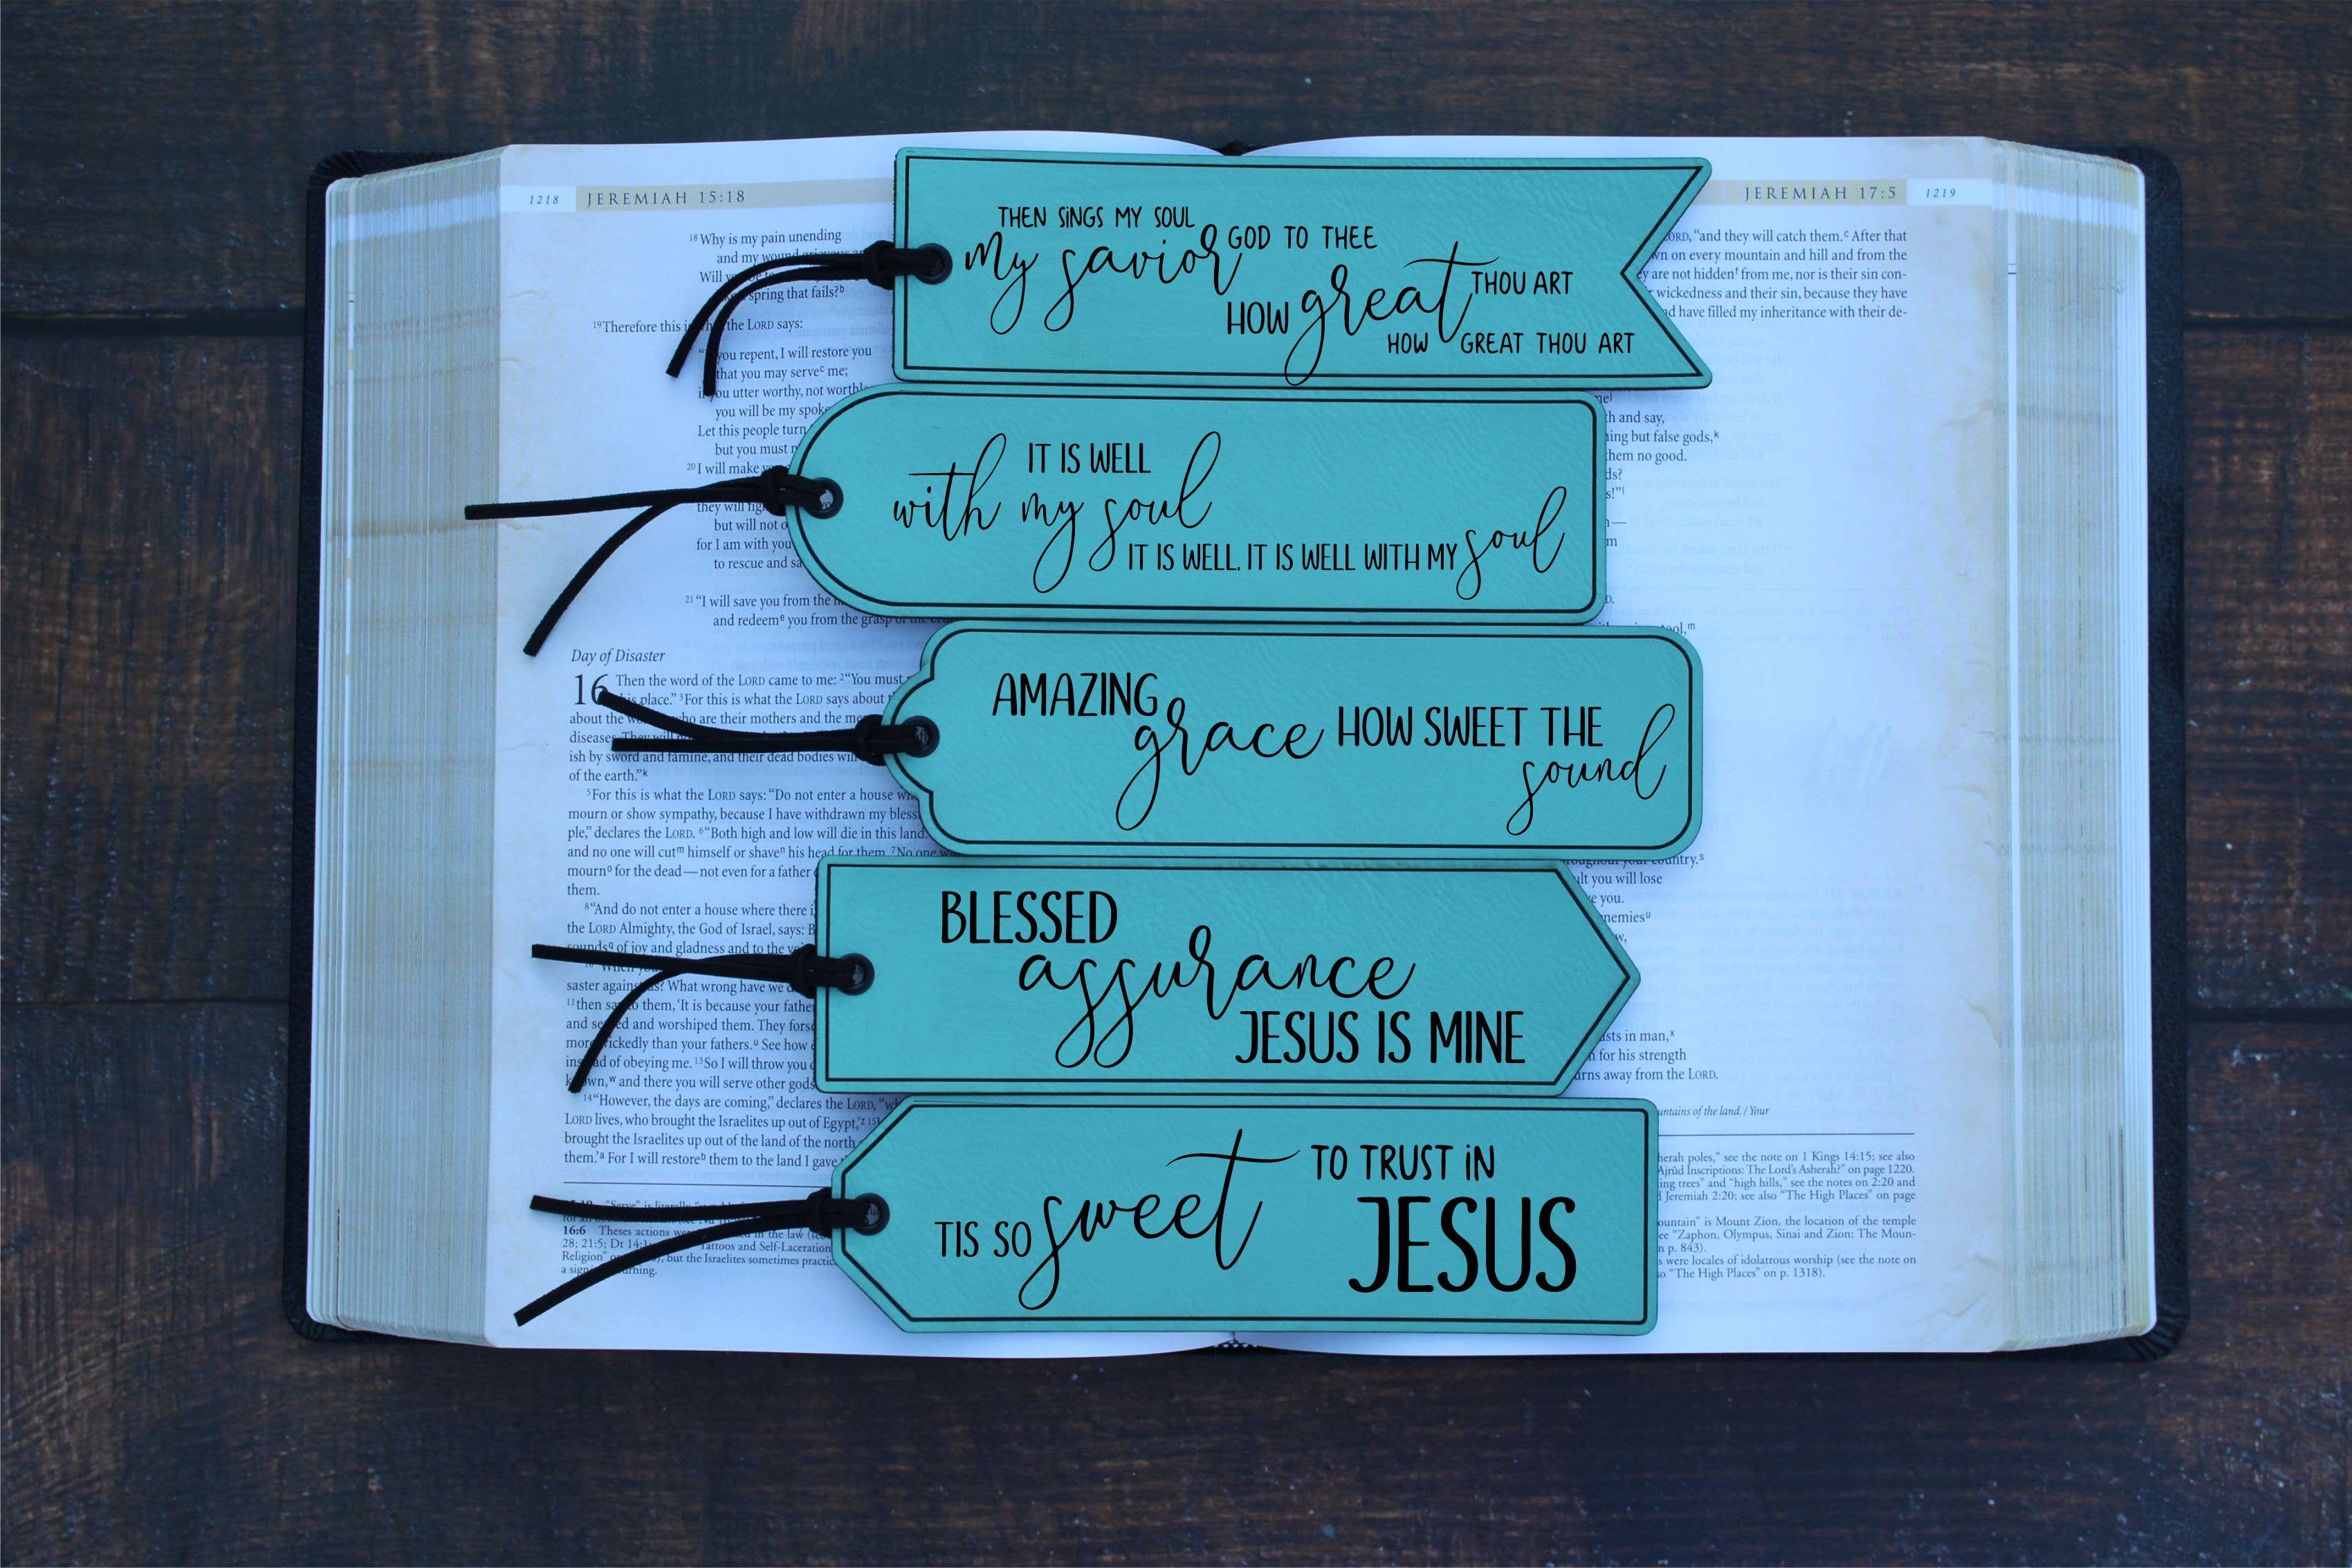 1218 JEREMIAH 15:18
JEREMIAH 17:5 1219
THEN SiNGS MY SOUL
my savior GOD TO THEE
HOW great THOU ART
HOW GREAT THOU ART
IT IS WELL
with my soul
IT IS WELL, IT IS WELL WITH MY soul
AMAZING
grace HOW SWEET THE
sound
BLESSED
assurance
JESUS IS MINE
TIS SO sweet TO TRUST iN
JESUS
18 Why is my pain unending
and my wound
Will
spring that fails?b
19 Therefore this is the LORD says:
you repent, I will restore you
that you may servec me;
you utter worthy, not
you will be my
Let this people turn
but you must
20 I will make
they will
but will not
for I am with you
to rescue and
21 “I will save you from the
and redeeme you from the grasp of the
Day of Disaster
16 Then the word of the LORD came to me: 2“You must
place.” 3For this is what the LORD says about
about the who are their mothers and the
diseases. They will
ish by sword and famine, and their dead bodies will
of the earth.”k
5For this is what the LORD says: “Do not enter a house
mourn or show sympathy, because I have withdrawn my
ple,” declares the LORD. 6“Both high and low will die in this land.
and no one will cutm himself or shaven his head for them. 7No one
mourno for the dead—not even for a father
them.
8“And do not enter a house where there
the LORD Almighty, the God of Israel, says:
soundsq of joy and gladness and to the
saster against us? What wrong have we
11then say to them, ‘It is because your
and served and worshiped them. They
more wickedly than your fathers.u See how
instead of obeying me. 13So I will throw you
known,w and there you will serve other gods
14“However, the days are coming,” declares the LORD,
LORD lives, who brought the Israelites up out of Egypt,’z
brought the Israelites up out of the land of the north
them.’a For I will restoreb them to the land I gave
16:6 Theses actions were in the law
28; 21:5; Dt Tattoos and Self-Laceration
Religion” but the Israelites sometimes
a sign of mourning.
LORD, “and they will catch them.c After that
on every mountain and hill and from the
are not hiddenf from me, nor is their sin con-
wickedness and their sin, because they have
have filled my inheritance with their de-
and say,
but false gods,k
them no good.
country.s
you will lose
you.
in man,x
for his strength
away from the LORD.
of the land. / Your
poles,” see the note on 1 Kings 14:15; see also
Ajrûd Inscriptions: The Lord’s Asherah?” on page 1220.
trees” and “high hills,” see the notes on 2:20 and
Jeremiah 2:20; see also “The High Places” on page
is Mount Zion, the location of the temple
“Zaphon, Olympus, Sinai and Zion: The Moun-
p. 843).
were locales of idolatrous worship (see the note on
“The High Places” on p. 1318).